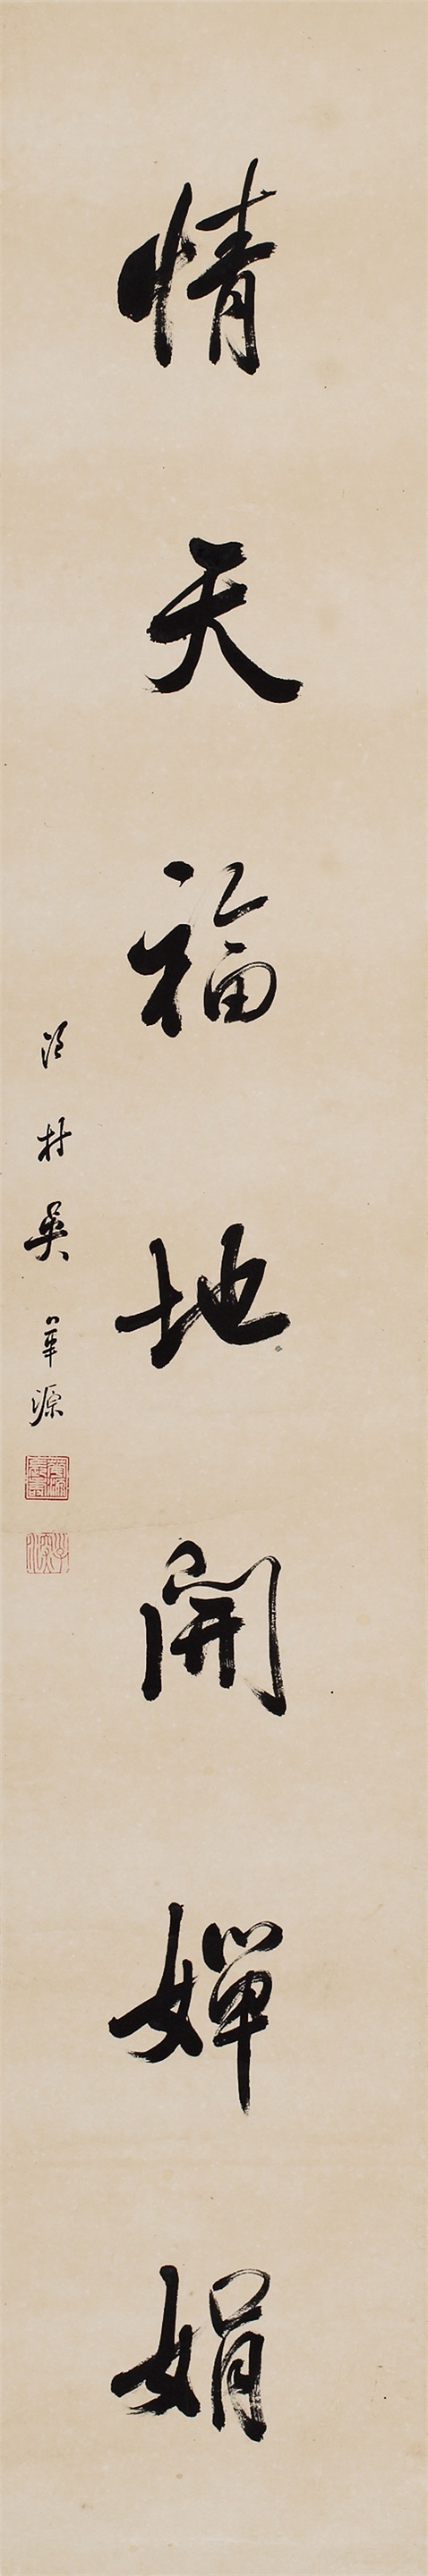 情天福地開嬋娟
村吳華源